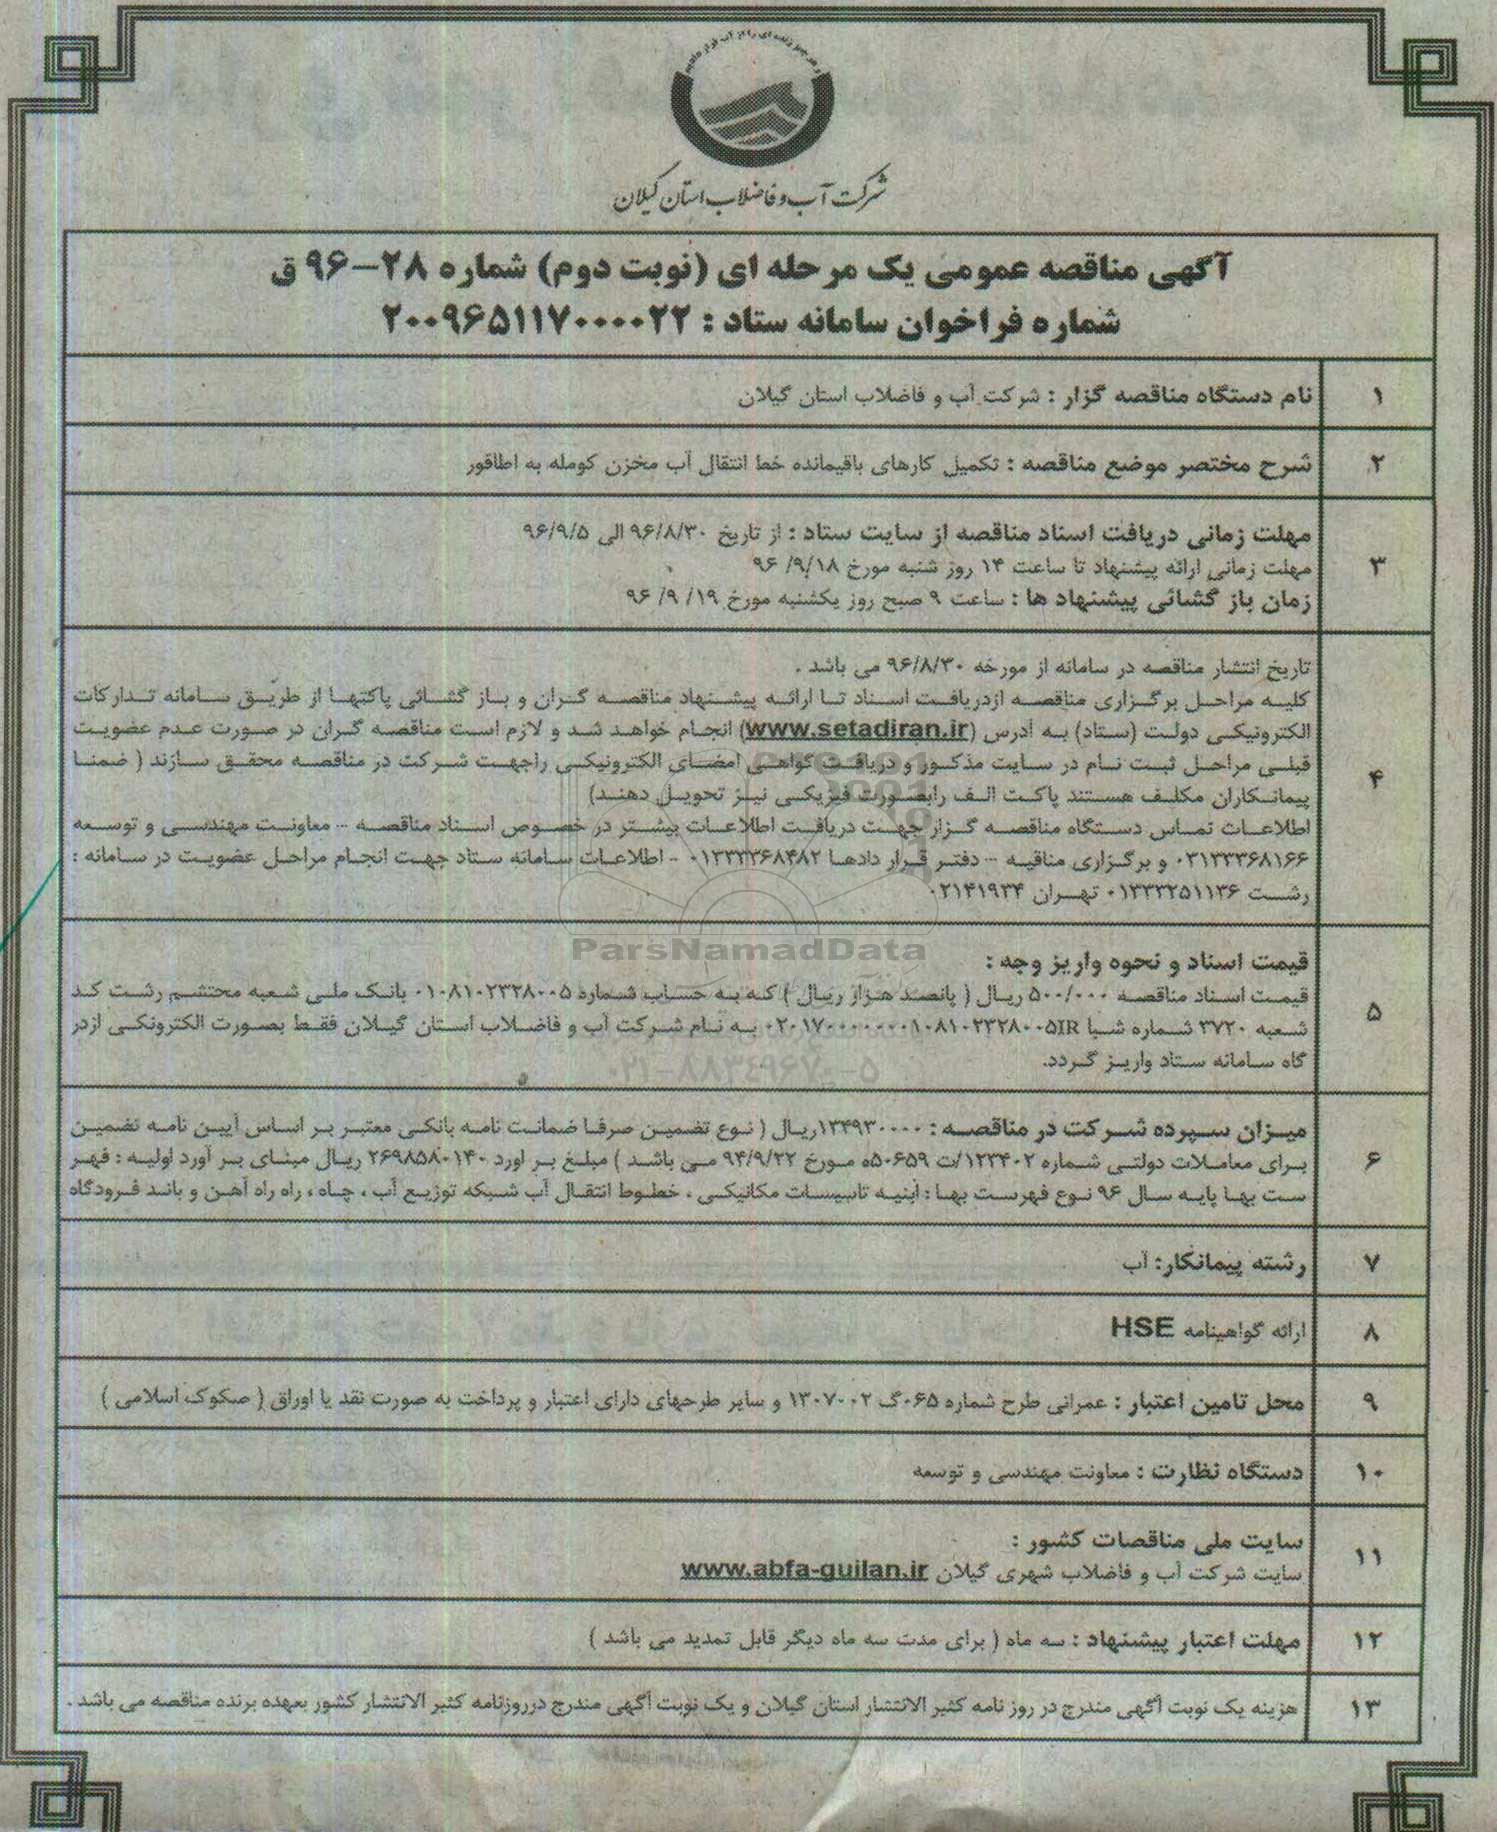 و هر چیز زنده ای را از آب قرار دادیم
شرکت آب و فاضلاب استان گیلان
آگهی مناقصه عمومی یک مرحله ای (نوبت دوم) شماره ۲۸–۹۶ ق
شماره فراخوان سامانه ستاد : ۲۰۰۹۶۵۱۱۷۰۰۰۰۲۲
۱ نام دستگاه مناقصه گزار : شرکت آب و فاضلاب استان گیلان
۲ شرح مختصر موضع مناقصه : تکمیل کارهای باقیمانده خط انتقال آب مخزن کومله به اطاقور
۳ مهلت زمانی دریافت اسناد مناقصه از سایت ستاد : از تاریخ ۹۶/۸/۳۰ الی ۹۶/۹/۵
مهلت زمانی ارائه پیشنهاد تا ساعت ۱۴ روز شنبه مورخ ۹۶ /۹/۱۸
زمان باز گشائی پیشنهاد ها : ساعت ۹ صبح روز یکشنبه مورخ ۹۶ /۹ /۱۹
۴ تاریخ انتشار مناقصه در سامانه از مورخه ۹۶/۸/۳۰ می باشد .
کلیه مراحل برگزاری مناقصه ازدریافت اسناد تا ارائه پیشنهاد مناقصه گران و باز گشائی پاکتها از طریق سامانه تدارکات
الکترونیکی دولت (ستاد) به آدرس (www.setadiran.ir) انجام خواهد شد و لازم است مناقصه گران در صورت عدم عضویت
قبلی مراحل ثبت نام در سایت مذکور و دریافت گواهی امضای الکترونیکی راجهت شرکت در مناقصه محقق سازند ( ضمنا
پیمانکاران مکلف هستند پاکت الف رابصورت فیزیکی نیز تحویل دهند)
اطلاعات تماس دستگاه مناقصه گزار جهت دریافت اطلاعات بیشتر در خصوص اسناد مناقصه -- معاونت مهندسی و توسعه
۰۳۱۳۳۳۶۸۱۶۶ و برگزاری مناقیه -- دفتر قرار دادها ۰۱۳۳۳۳۶۸۴۸۲ - اطلاعات سامانه ستاد جهت انجام مراحل عضویت در سامانه :
رشت ۰۱۳۳۳۲۵۱۱۳۶ تهران ۰۲۱۴۱۹۳۴
ParsNamadData
۵ قیمت اسناد و نحوه واریز وجه :
قیمت اسناد مناقصه ۵۰۰/۰۰۰ ریال ( پانصد هزار ریال ) که به حساب شماره ۰۱۰۸۱۰۲۳۲۸۰۰۵ بانک ملی شعبه محتشم رشت کد
شعبه ۳۷۲۰ شماره شبا به نام شرکت آب و فاضلاب استان گیلان فقط بصورت الکترونکی ازدر
گاه سامانه ستاد واریز گردد.
۰۲۱-۸۸۳۴۹۶۷۰-۵
۶ میزان سپرده شرکت در مناقصه : ۱۳۴۹۳۰۰۰۰ریال ( نوع تضمین صرفا ضمانت نامه بانکی معتبر بر اساس آیین نامه تضمین
برای معاملات دولتی شماره ۱۲۳۴۰۲/ت ۵۰۶۵۹ه مورخ ۹۴/۹/۲۲ می باشد ) مبلغ بر اورد ۲۶۹۸۵۸۰۱۴۰ ریال مبنای بر آورد اولیه : فهر
ست بها پایه سال ۹۶ نوع فهرست بها : ابنیه تاسیسات مکانیکی ، خطوط انتقال آب شبکه توزیع آب ، چاه ، راه راه آهن و باند فرودگاه
۷ رشته پیمانکار: آب
۸ ارائه گواهینامه HSE
۹ محل تامین اعتبار : عمرانی طرح شماره ۰۶۵گ ۱۳۰۷۰۰۲ و سایر طرحهای دارای اعتبار و پرداخت به صورت نقد یا اوراق ( صکوک اسلامی )
۱۰ دستگاه نظارت : معاونت مهندسی و توسعه
۱۱ سایت ملی مناقصات کشور :
سایت شرکت آب و فاضلاب شهری گیلان www.abfa-guilan.ir
۱۲ مهلت اعتبار پیشنهاد : سه ماه ( برای مدت سه ماه دیگر قابل تمدید می باشد )
۱۳ هزینه یک نوبت آگهی مندرج در روز نامه کثیر الانتشار استان گیلان و یک نوبت آگهی مندرج درروزنامه کثیر الانتشار کشور بعهده برنده مناقصه می باشد .